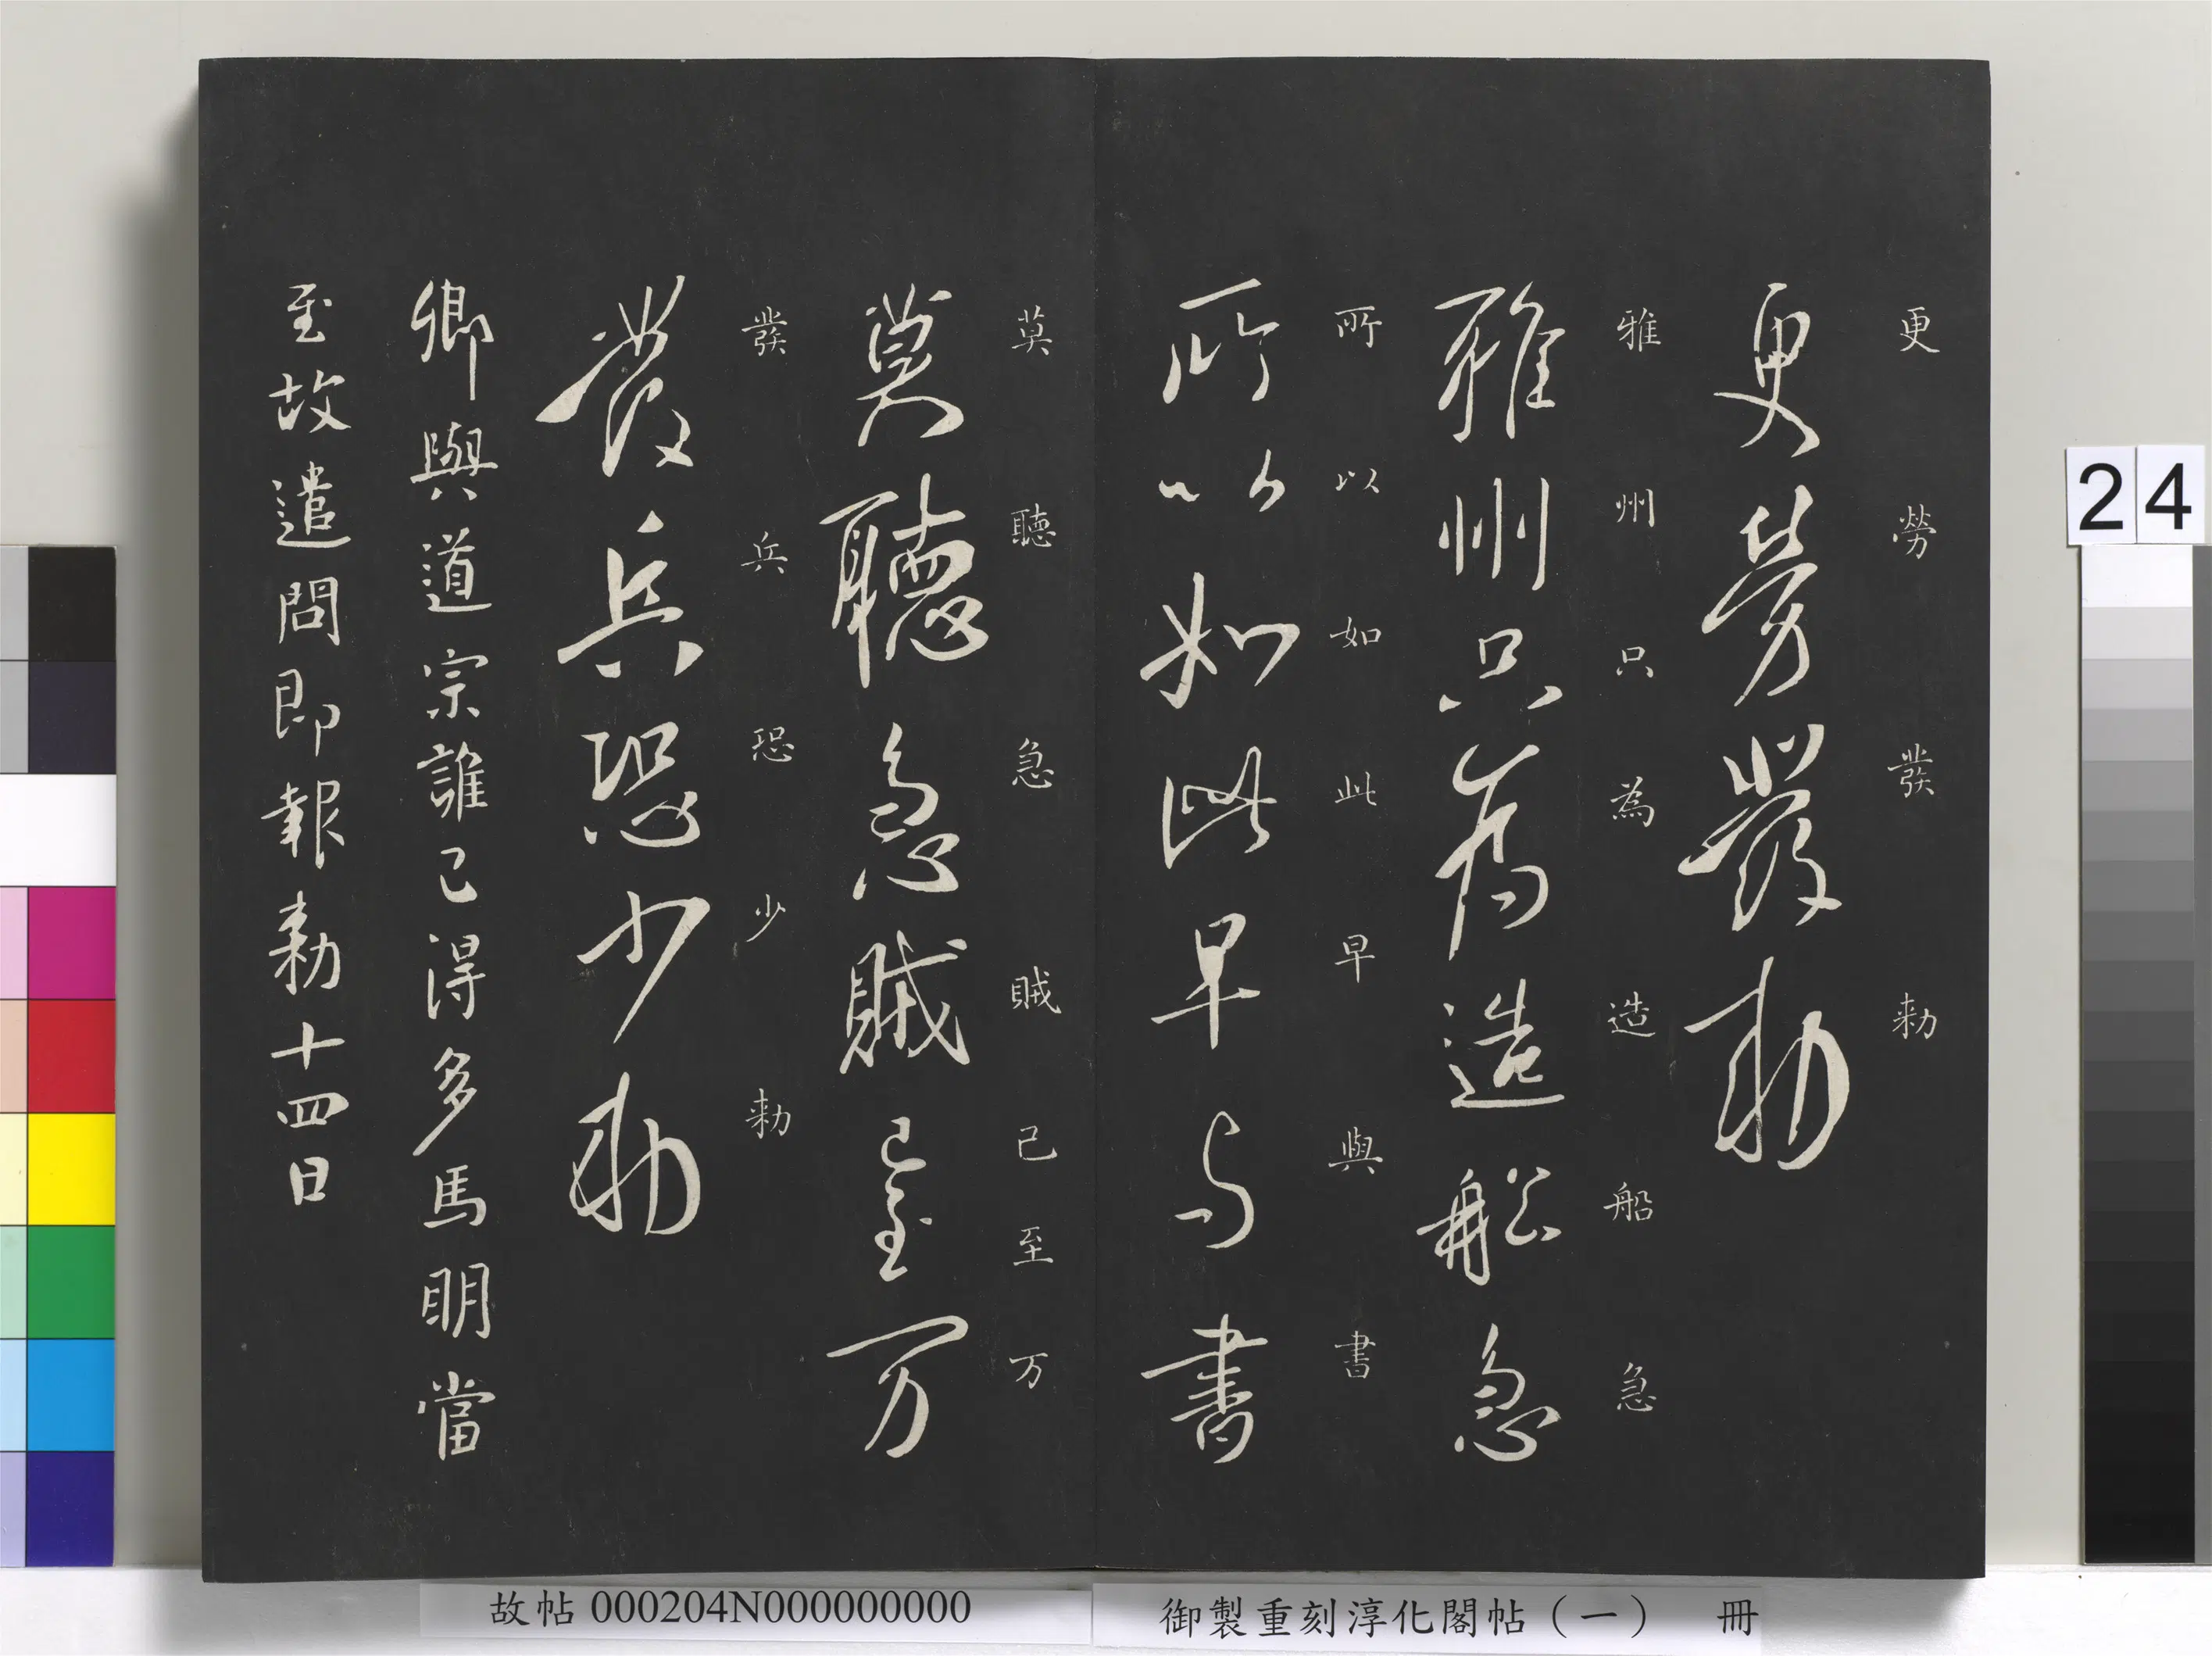 更勞發勅
更勞發勅
雅州只為造船急
雅州只為造船急
所以如此早與書
所以如此早与書
莫聽急賊已至万
莫聽急賊已至万
發兵恐少勅
發兵恐少勅
卿與道宗誰已得多馬明當
至故遣問即報勅十四日
24
故帖 000204N000000000
御製重刻淳化閣帖（一） 冊